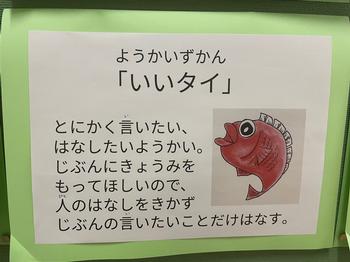 ようかいずかん
「いいタイ」
とにかく言いたい、
はなしたいようかい。
じぶんにきょうみを
もってほしいので、
人のはなしをきかず
じぶんの言いたいことだけはなす。